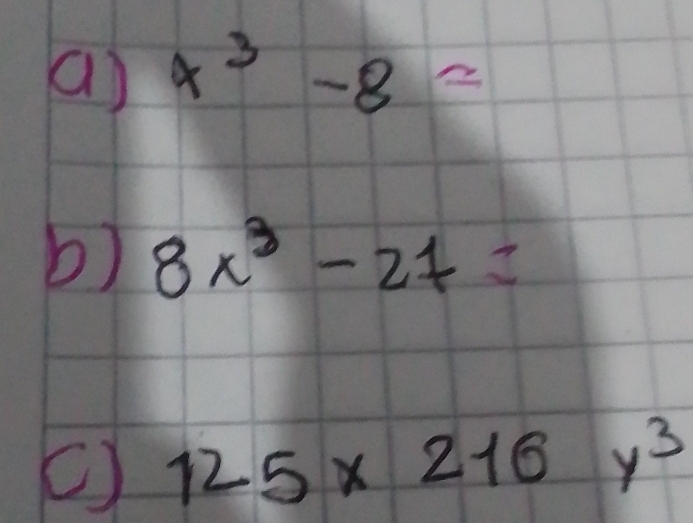 a) x³ -8 =
b) 8x³ -27 =
c) 125x 216 y³